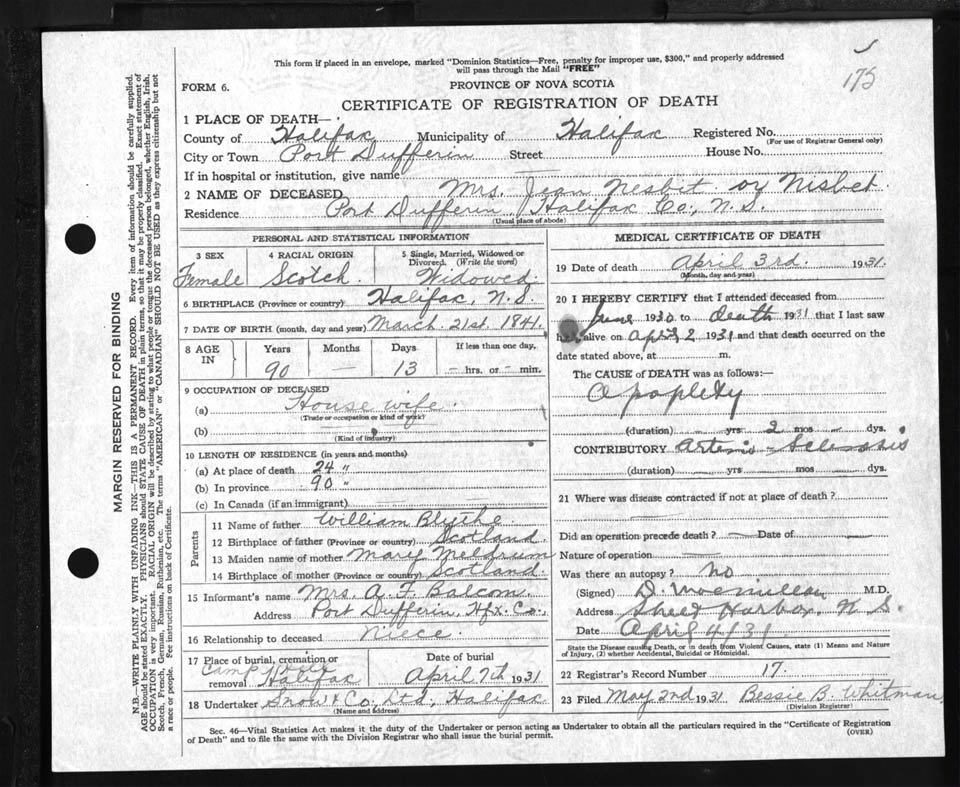 This form if placed in an envelope, marked "Dominion Statistics—Free, penalty for improper use, $300," and properly addressed
will pass through the Mail "FREE"
175
FORM 6.
PROVINCE OF NOVA SCOTIA
CERTIFICATE OF REGISTRATION OF DEATH
1 PLACE OF DEATH—
County of Halifax Municipality of Halifax Registered No.
(For use of Registrar General only)
City or Town Port Dufferin Street House No.
If in hospital or institution, give name
2 NAME OF DECEASED Mrs. Jean Nesbit or Nisbet
Residence Port Dufferin, Halifax Co., N.S.
(Usual place of abode)
PERSONAL AND STATISTICAL INFORMATION
3 SEX 4 RACIAL ORIGIN 5 Single, Married, Widowed or
Divorced. (Write the word)
Female Scotch Widowed.
6 BIRTHPLACE (Province or country) Halifax, N.S.
7 DATE OF BIRTH (month, day and year) March 21st. 1841.
8 AGE IN Years Months Days If less than one day,
90 — 13 — hrs. or — min.
9 OCCUPATION OF DECEASED
(a) House wife.
(Trade or occupation or kind of work)
(b)
(Kind of industry)
10 LENGTH OF RESIDENCE (in years and months)
(a) At place of death 24 "
(b) In province 90 "
(c) In Canada (if an immigrant)
Parents
11 Name of father William Blythe.
12 Birthplace of father (Province or country) Scotland.
13 Maiden name of mother Mary Meldrum
14 Birthplace of mother (Province or country) Scotland.
15 Informant's name Mrs. A. F. Balcom.
Address Port Dufferin, Hfx. Co.,
16 Relationship to deceased Niece.
17 Place of burial, cremation or Date of burial
removal Camp Hill Halifax April 7th 1931
18 Undertaker Snow & Co. Ltd, Halifax
(Name and address)
MEDICAL CERTIFICATE OF DEATH
19 Date of death April 3rd. 1931.
(Month, day and year)
20 I HEREBY CERTIFY that I attended deceased from
June 1930 to death 1931 that I last saw
her alive on April 2 1931 and that death occurred on the
date stated above, at m.
The CAUSE of DEATH was as follows:—
Apoplexy
(duration) yrs 2 mos dys.
CONTRIBUTORY Arterio Sclerosis
(duration) yrs mos dys.
21 Where was disease contracted if not at place of death?
Did an operation precede death? — Date of
Nature of operation
Was there an autopsy? No
(Signed) D. M.D.
Address Sheet Harbor, N.S.
Date April 4/31
State the Disease causing Death, or in death from Violent Causes, state (1) Means and Nature
of Injury, (2) whether Accidental, Suicidal or Homicidal.
22 Registrar's Record Number 17.
23 Filed May 2nd 1931 Bessie B. Whitman
(Division Registrar)
Sec. 46—Vital Statistics Act makes it the duty of the Undertaker or person acting as Undertaker to obtain all the particulars required in the "Certificate of Registration
of Death" and to file the same with the Division Registrar who shall issue the burial permit.
(OVER)
MARGIN RESERVED FOR BINDING
N.B.—WRITE PLAINLY WITH UNFADING INK—THIS IS A PERMANENT RECORD. Every item of information should be carefully supplied.
AGE should be stated EXACTLY. PHYSICIANS should STATE CAUSE OF DEATH in plain terms, so that it may be properly classified. Exact statement of
OCCUPATION is very important. RACIAL ORIGIN will be described by stating to what people or tongue the deceased person belonged, whether English, Irish,
Scotch, French, German, Russian, Ruthenian, etc. The terms "AMERICAN" or "CANADIAN" SHOULD NOT BE USED as they express citizenship but not
a race or people. See instructions on back of Certificate.